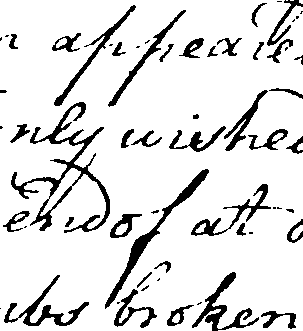 appeare
nly wished
end of at
mbs broken